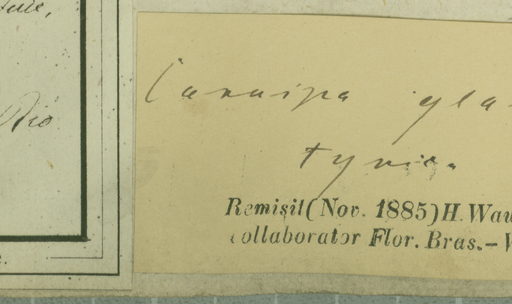 Rio
Caraipa gla
typica.
Remisit (Nov. 1885) H. Wau
collaborator Flor. Bras. – W